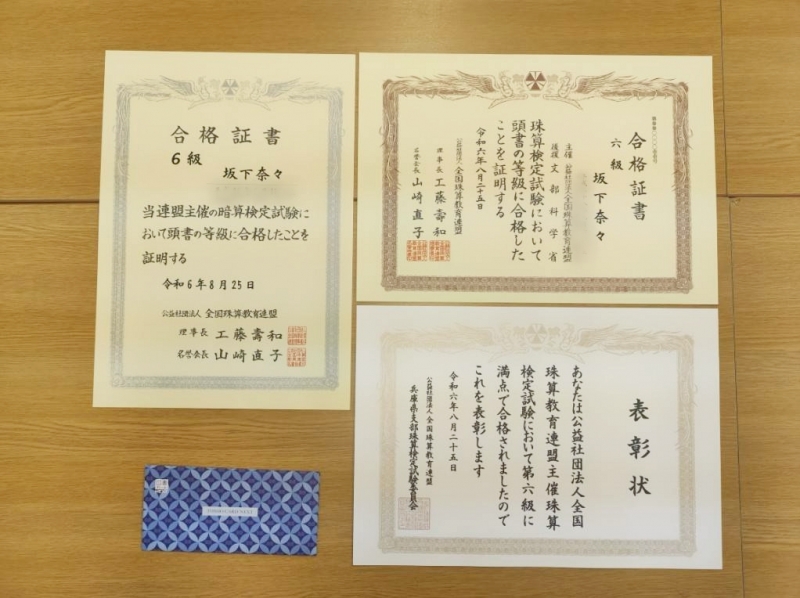 合格証書
6級
坂下奈々
当連盟主催の暗算検定試験に
おいて頭書の等級に合格したことを
証明する
令和6年8月25日
公益社団法人 全国珠算教育連盟
理事長 工藤壽和
名誉会長 山崎直子
合格証書
六級
坂下奈々
主催 公益社団法人全国珠算教育連盟
後援 文部科学省
珠算検定試験において
頭書の等級に合格した
ことを証明する
令和六年八月二十五日
公益社団法人 全国珠算教育連盟
理事長 工藤壽和
名誉会長 山崎直子
表彰状
あなたは公益社団法人全国
珠算教育連盟主催珠算
検定試験において第六級に
満点で合格されましたので
これを表彰します
令和六年八月二十五日
公益社団法人 全国珠算教育連盟
兵庫県支部珠算検定試験委員会